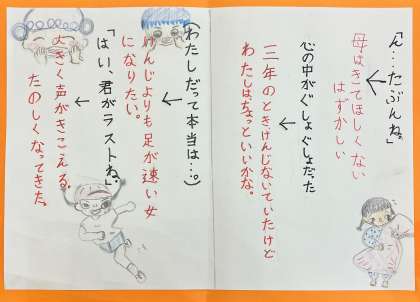 「ん…たぶんね。」
母はきてほしくない
はずかしい
心の中がぐしょぐしょだった
三年のときけんじないていたけど
わたしはだっといいがな。
(わたしだって本当は…。)
けんじよりも足が速い女
になりたい。
「はい、君がラストね。」
大きく声がきこえる。
たのしくなってきた。